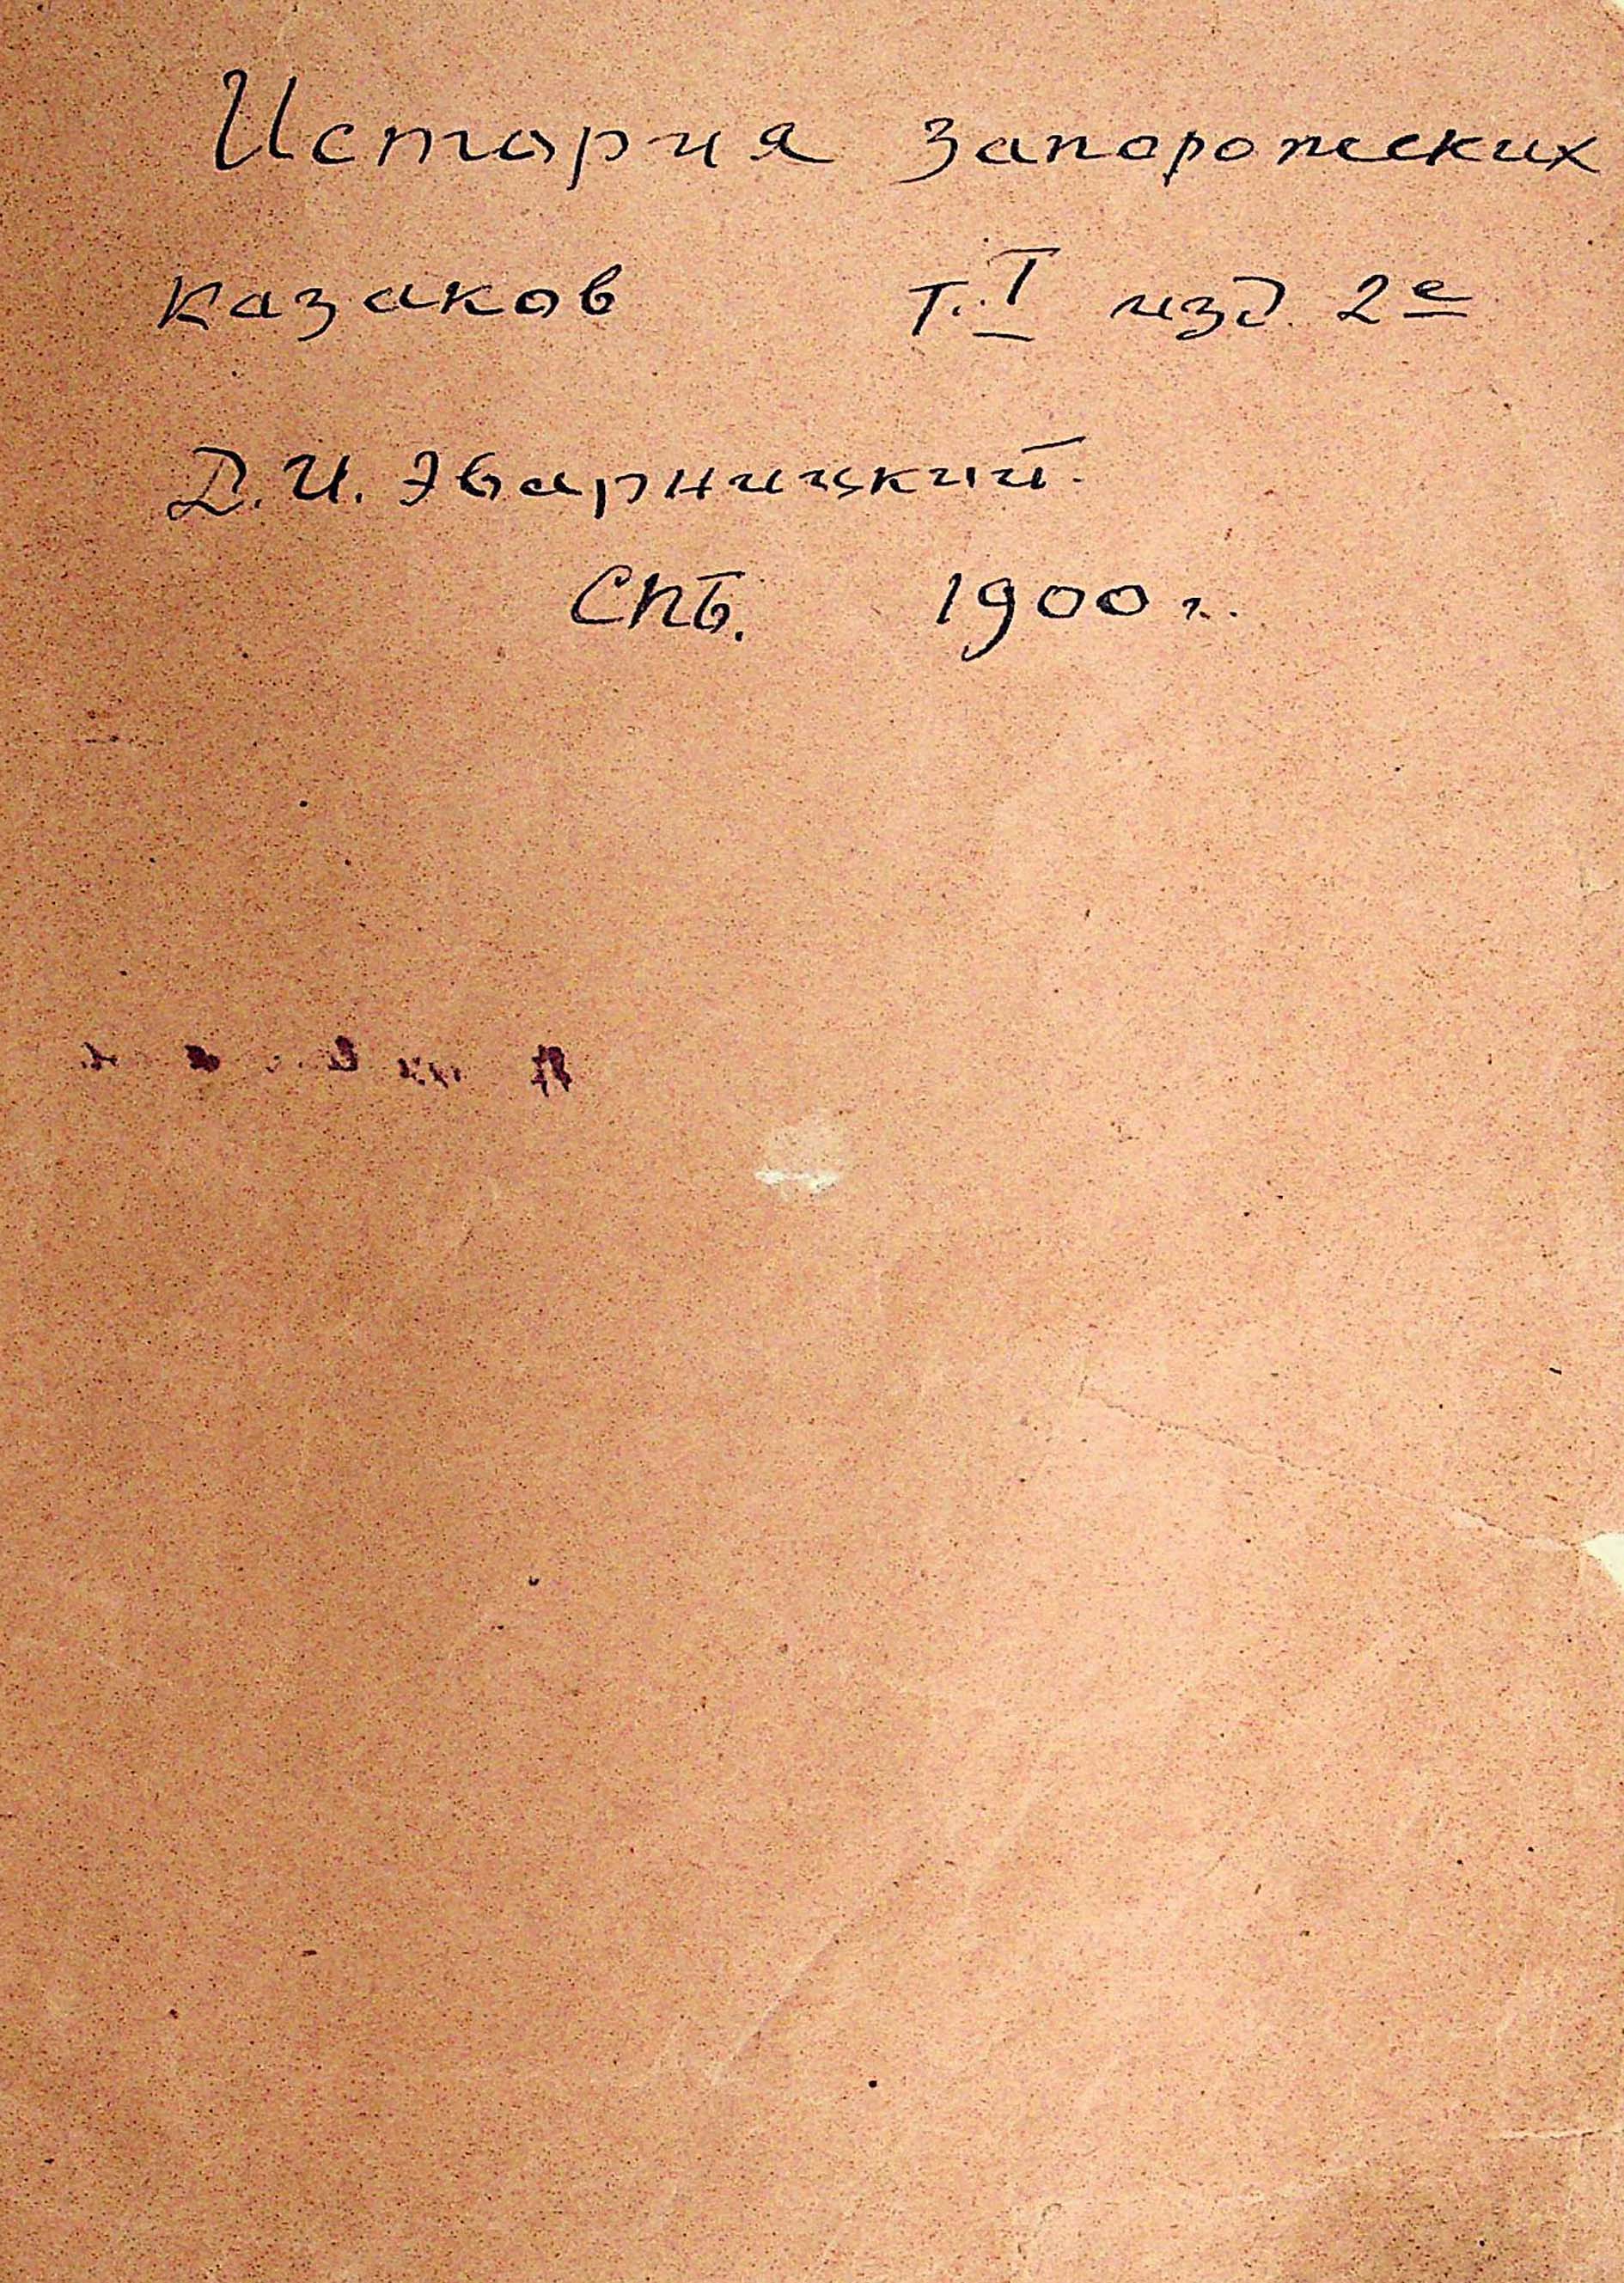 История запорожских
казаков т. I изд. 2е
Д. И. Эварницкий.
СПб. 1900 г.